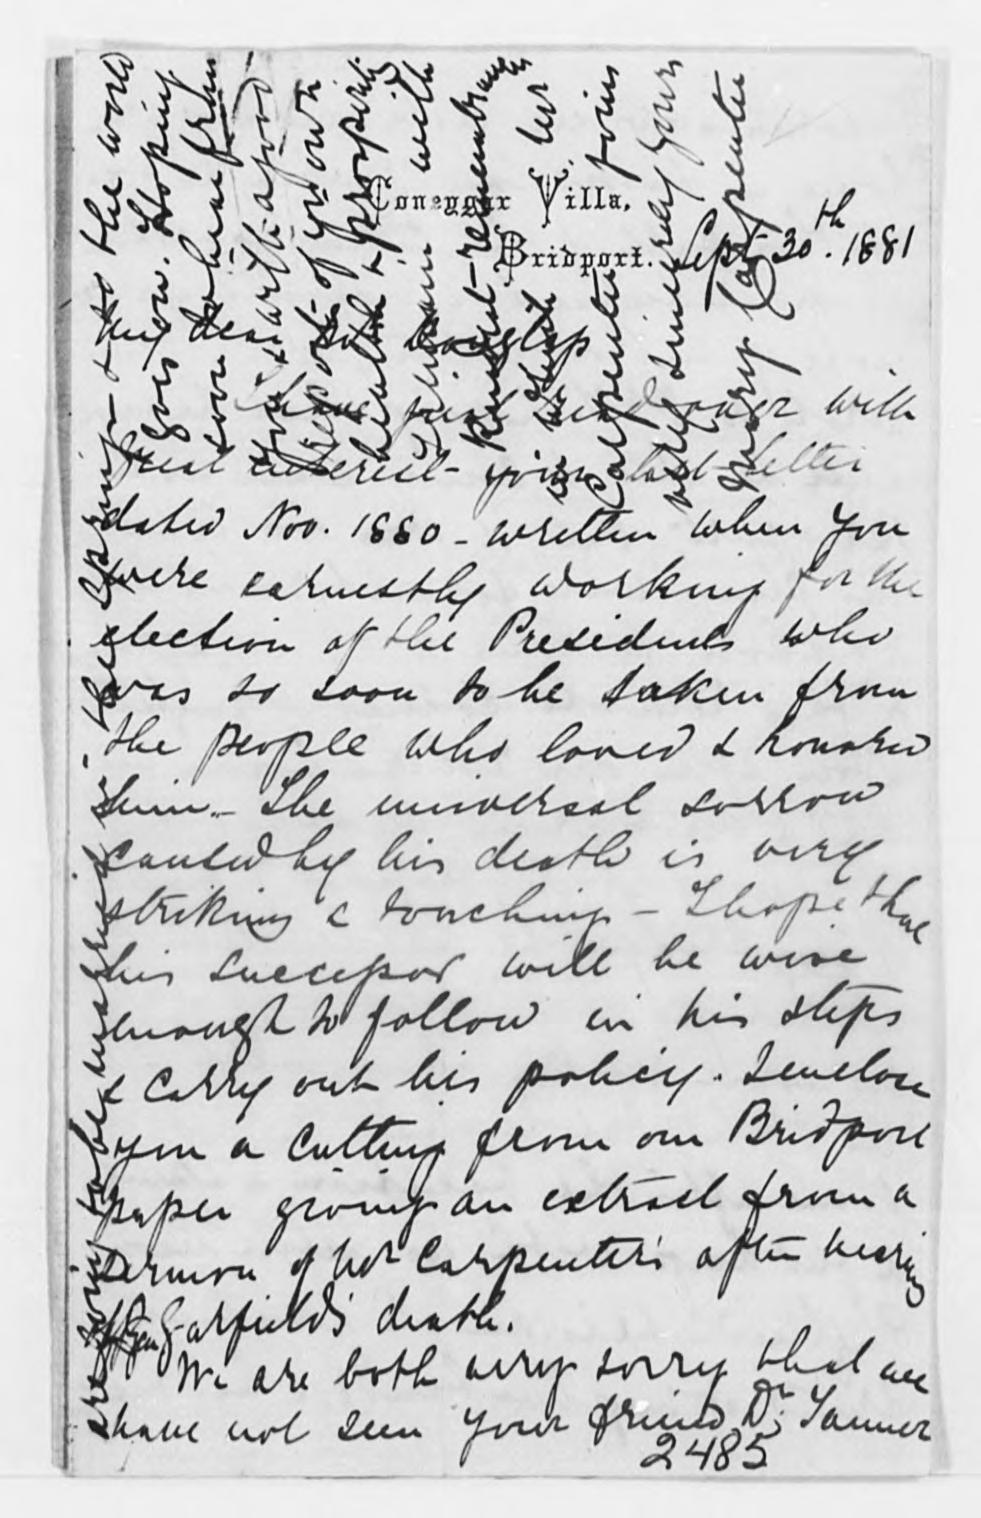 Coneygar Villa,
Bridport. Sept 30th. 1881
My dear Mr Douglass
I have just read over with
great interest your last letter
dated Nov. 1880 - written when you
were earnestly working for the
election of the Presidents who
was so soon to be taken from
the people who loved & honored
him. - The universal sorrow
caused by his death is very
striking & touching - I hope that
his successor will be wise
enough to follow in his steps
& carry out his policy. I enclose
you a cutting from our Bridport
paper giving an extract from a
Sermon of Mr Carpenter's after hearing
of Gen Garfield's death.
We are both very sorry that we
have not seen your friend Dr Tanner
2485
are going to be married in the Spring & so the world
goes on. Hoping
soon to hear from
you with a good
report of your own
health & prosperity
I remain with
kindest remembrances
in which Mr
Carpenter joins
very sincerely yours
Mary Carpenter